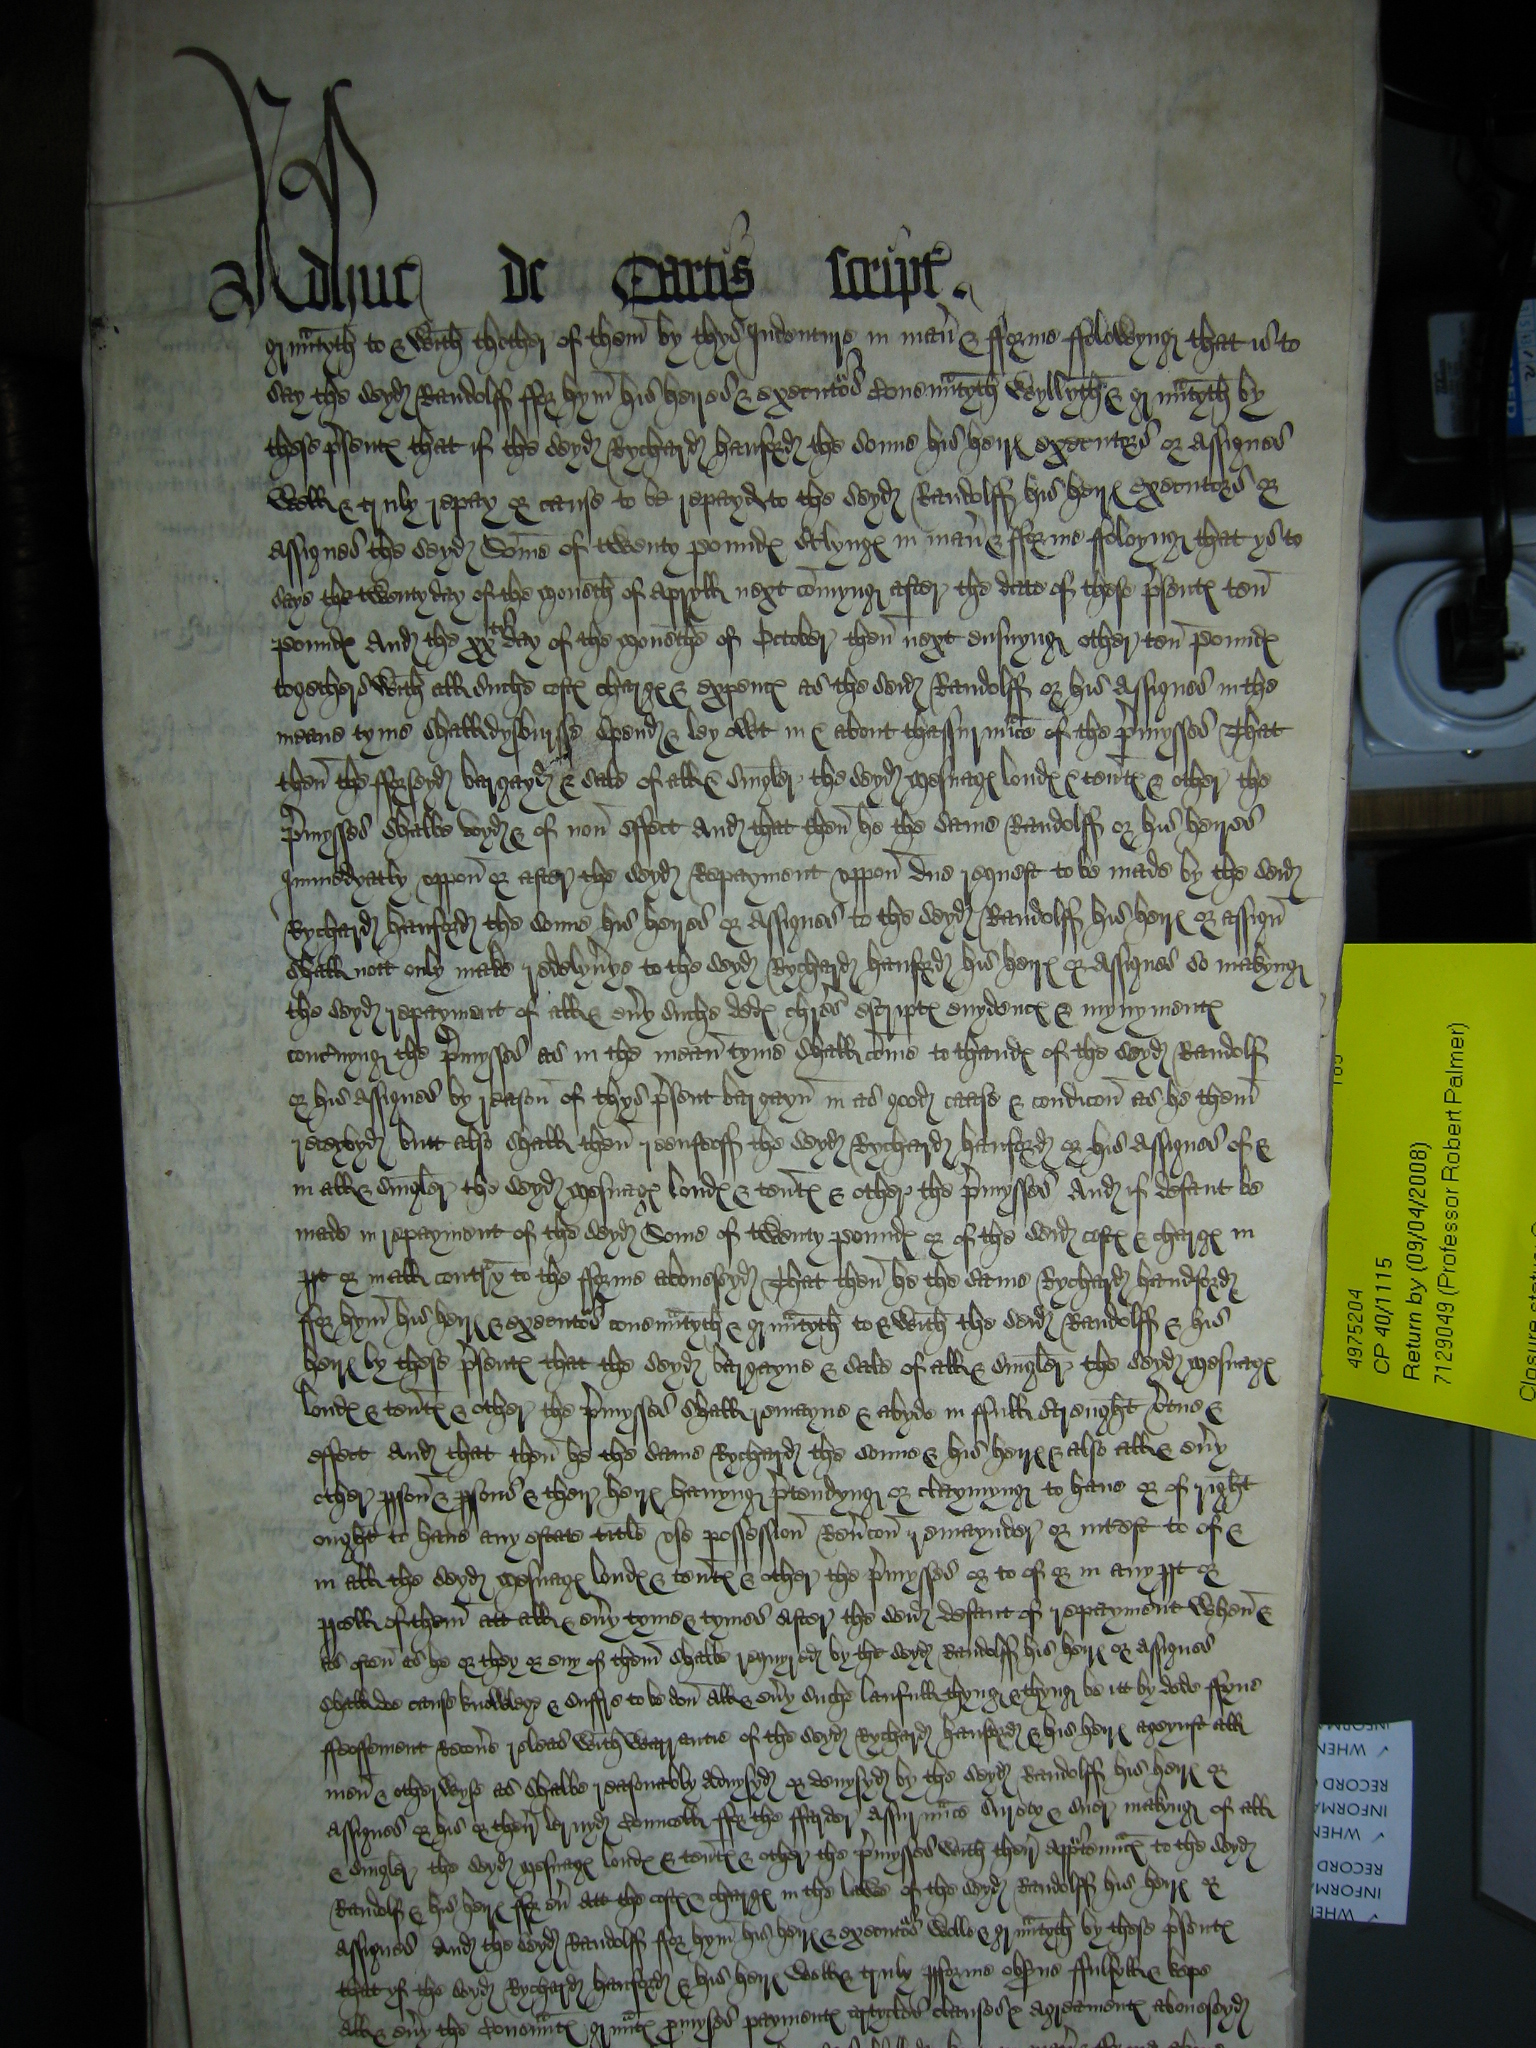 Adhuc de Cartis script.
gñtyth to & with thother of them by thys Indenture in mañ & fforme ffolowyng that is to
say the seyd Randolff ffor hym his heires & executors Covenntyth Wyllyth & gñntyth by
these psentes that if the seyd Rychard hanford the sonne his heires executors or Assignes
Well & truly repay or cause to be repayd to the seyd Randolff his heires executors or
Assignes the seyd Some of twenty poundes sterlynges in mañ & fforme ffoloyng that ys to
saye the twenty day of the moneth of Apryll next comyng after the date of these psentes ten
poundes And the xxth day of the monethe of October then next ensuyng other ten poundes
togethers with all suche costes charges & expences as the seid Randolff or his Assignes in the
meane tyme shall dysbursse spend & ley owt in & about thassurance of the pmysses That
then the fforseyd bargayn & sale of all & singler the seyd mesuages londes & tentes & other the
pmysses shalbe voyd & of non effect And that then he the same Randolff or his heires
Immedyatly uppon or after the seyd Repayment uppon due request to be made by the seid
Rychard hanford the sonne his heires or Assignes to the seyd Randolff his heires or assign
shall nott only make redelyvye to the seyd Rychard hanford his heires or Assignes so makyng
the seyd repayment of all & evy suche dedes chres escriptes evydences & mynymentes
concnyng the pmysses as in the mean tyme shall come to thandes of the seyd Randolf
or his Assignes by reason of thys psent bargayn in as good caase & condicon as he them
receyvyd butt also shall then reenfeoff the seyd Rychard hanford or his Assignes of &
in all & singler the seyd mesuages londes & tentes & other the pmysses And if defaut be
made in repayment of the seyd Some of twenty poundes or of the seid costes & charges in
pt or in all contrary to the fforme aboveseyd That then he the same Rychard handford
ffor hym his heires & executors covenntyth & gñntyth to & with the seid Randolff & his
heires by these psentes that the seyd bargayne & sale of all & singler the seyd mesuages
londes & tentes & other the pmysses shall remayne & abyde in ffull strenght vtue &
effect And that then he the same Rychard the sonne & his heires & also all & evy
other pson & psons & their heires havyng ptendyng or claymyng to have or of right
ought to have any estate title use possession Revcon remaynder or intest to of &
in all the seyd mesuages londes & tentes & other the pmysses or to of or in any pt or
pcell of them att all & evy tyme & tymes after the seid defaut of repayment when &
as often as he or they or eny of them shalbe requyred by the seyd Randolff his heires or Assignes
shall doe cause knowlege & suffre to be don All & evy suche laufull thyng & thynges be itt by dede ffyne
ffeoffement Recovre releas with warrantie of the seyd Rychard hanford & his heires ageynst all
men & otherwyse as shalbe reasonably advysyd or devysyd by the seyd Randolff his heires or
Assignes or his or their lernyd councell ffor the ffarder Assurance surety & suer makyng of all
& singler the seyd mesuages londes & tentes & other the pmysses with their apptennces to the seyd
Randolf & his heires ffor ev att the costes & charges in the lawe of the seyd Randolff his heires or
Assignes And the seyd Randolff ffor hym his heires & executors wille & gñntyth by these psentes
that yf the seyd Rychard hanford & his heires well & truly pforme obsve ffulfyll & kepe
All & evy the Covenntes gñntes promyses paymentes artycles clauses & Agreamentes aboveseyd
4975204
CP 40/1115
Return by (09/04/2008)
7129049 (Professor Robert Palmer)
WHEN
RECORD
INFORMA
WHEN
RECORD
INFORMA
WHEN